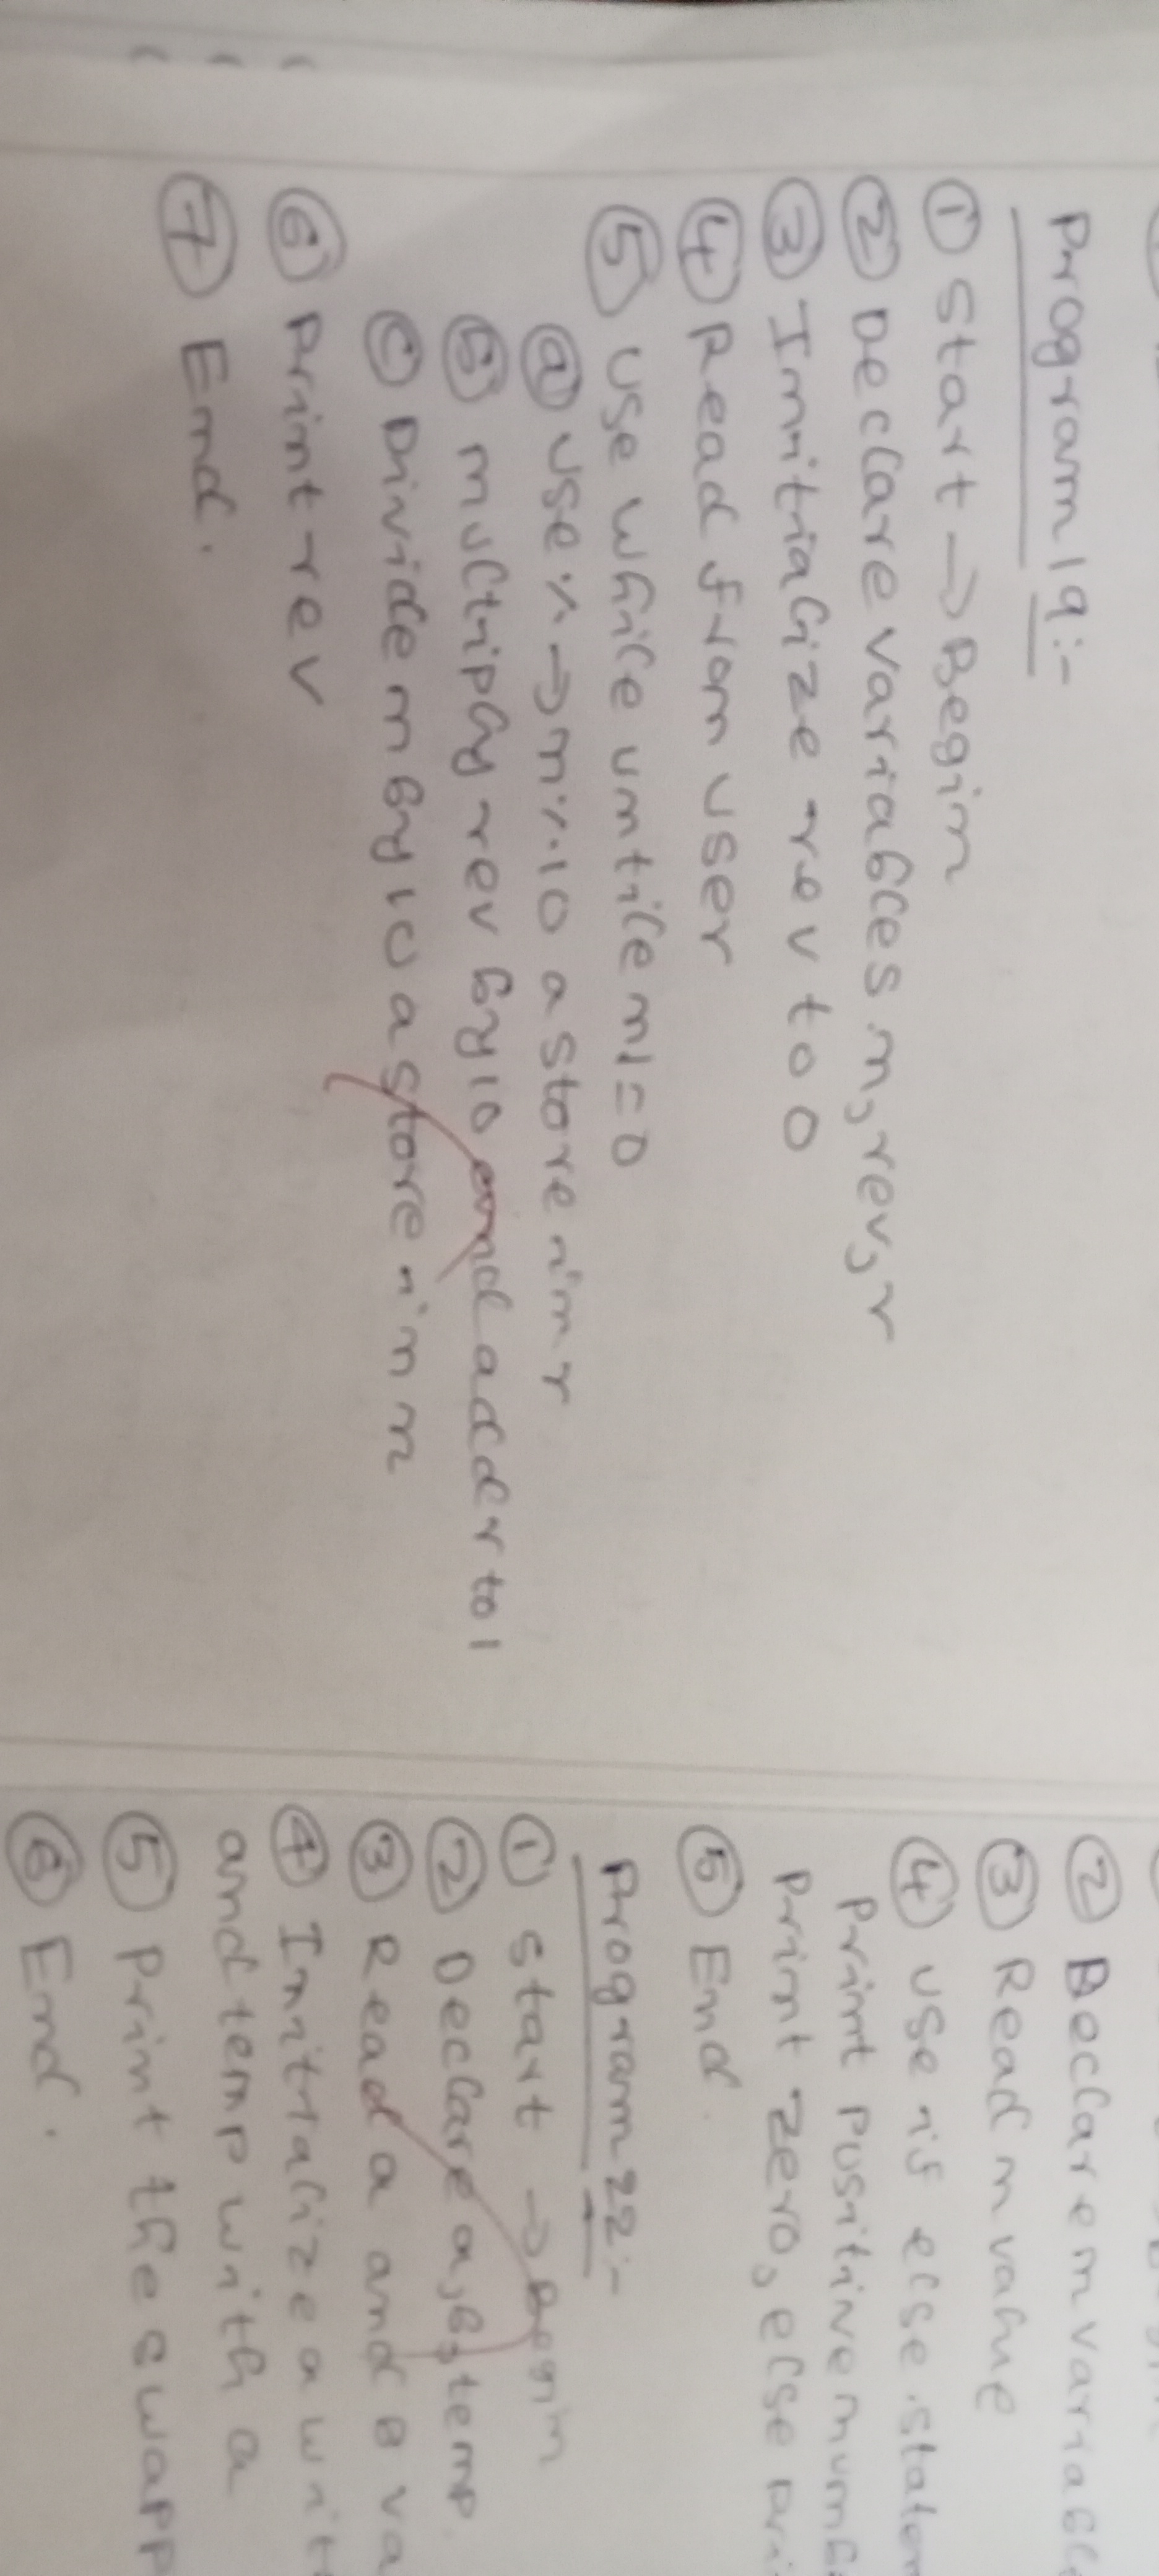 Program 19:-
① Start → Begin
② Declare variables n, rev, r
③ Initialize rev to 0
④ Read from user
⑤ Use while until n!=0
ⓐ Use % → n%10 a store in r
ⓑ multiply rev by 10 and add r to 1
ⓒ Divide n by 10 a store in n
⑥ Print rev
⑦ End.
② Declare n
③ Read n value
④ Use if else
Print positive
Print zero, else
⑤ End.
Program 22:-
① Start → Begin
② Declare a, b, temp.
③ Read a and B
④ Initialize a
and temp with a
⑤ Print the
⑥ End.